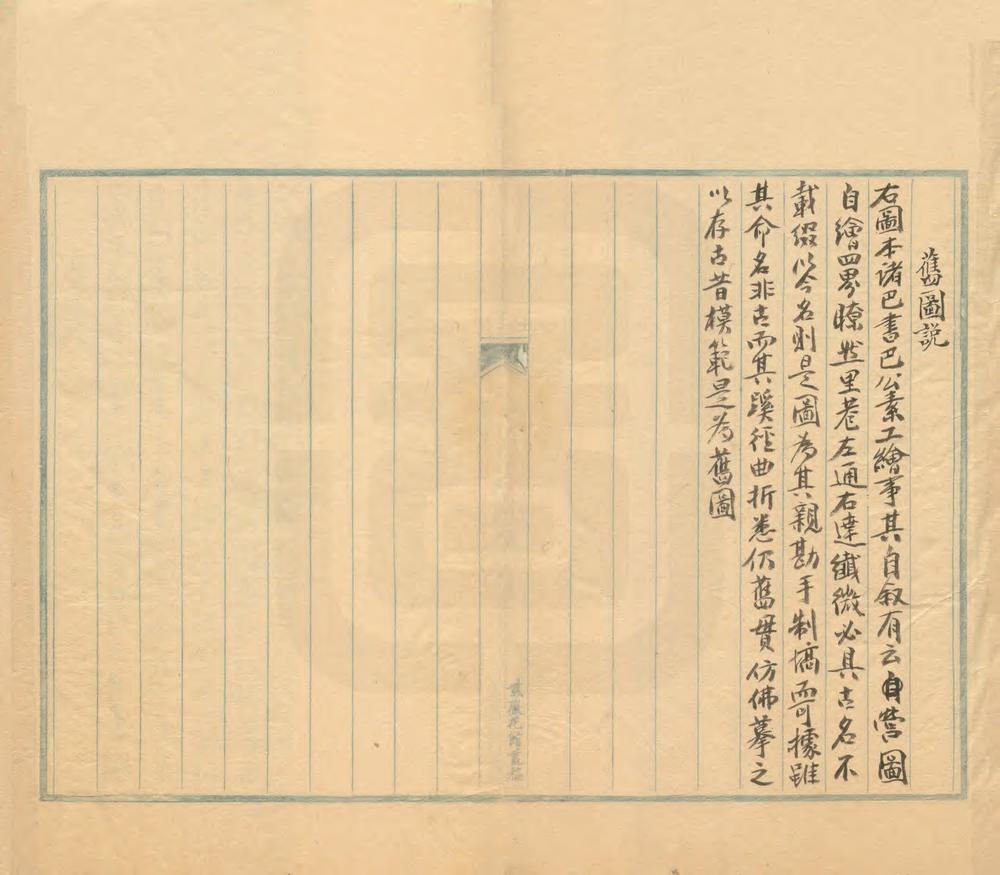 舊圖説
右圖本諸巴書巴公素工繪事其自叙有云自營圖
自繪四界瞭然里巷左通右達纖微必具古名不
載綴以今名則是圖為其親勘手制塙而可據雖
其命名非古而其蹊徑曲折悉仍舊貫仿佛摹之
以存古昔模範是為舊圖